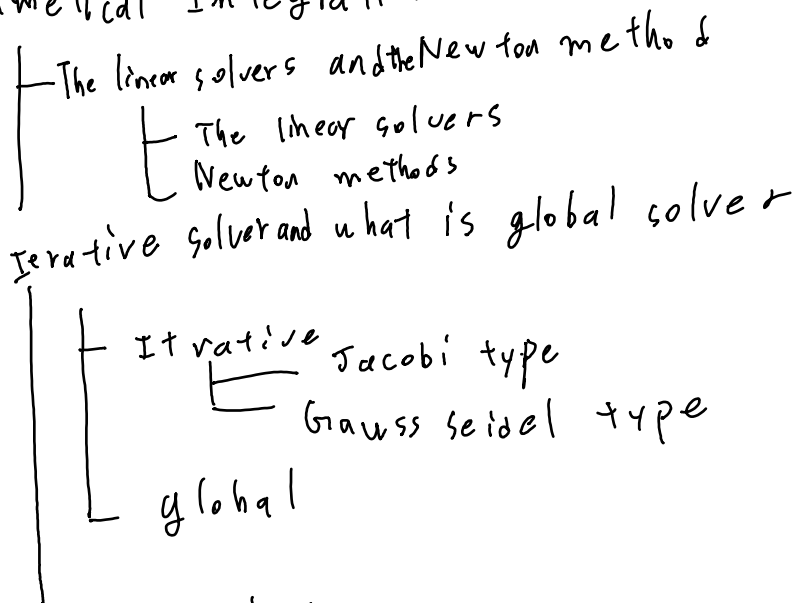 The linear solvers and the Newton method
The linear solvers
Newton methods
Ierative solver and what is global solver
Itrative
Jacobi type
Gauss seidel type
global